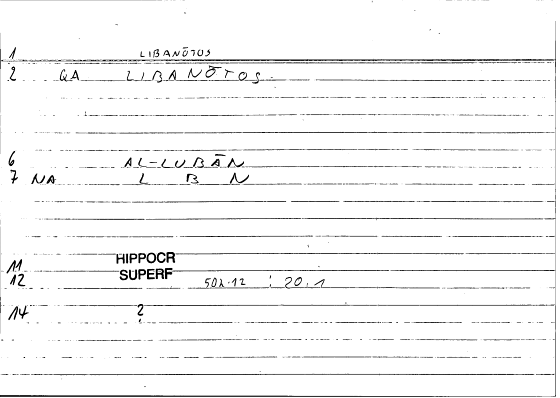 1 LIBANŌTOS
2 QA LIBANŌTOS
6 AL-LUBĀN
7 NA L B N
11 HIPPOCR
12 SUPERF 502.12 : 20.1
14 2